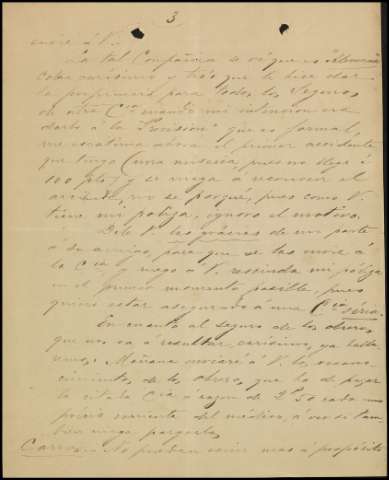 3
enviré á V.
La tal Compañia se vé que es Alemana
cobra carísimo y hizo que le hice dar
la preferencia para todos los Seguros
de otra Cia cuando mi intencion era
darlo á la "Prevision" que es formal,
me escatima ahora el primer accidente
que tengo (una miseria, pues no llega á
100 ptas) y se niega á reconocer el
accidente, no se porqué, pues como V.
tiene mi poliza, ignoro el motivo.
Déle V. las gracias de mi parte
á su amigo, para que se las envie á
la Cia y ruego á V. rescinda mi póliza
en el primer momento posible, pues
quiero estar asegurado á una Cia séria.
En cuanto al seguro de los obreros,
que nos va á resultar carísimo, ya habla-
remos. Mañana enviaré á V. los recono-
cimientos, de los obreros, que ha de pagar
la citada Cia á razon de 2'50 cada uno
precio corriente del médico, á ver si tam-
bien niega pagarlos.
Carros. No pueden venir mas á propósito